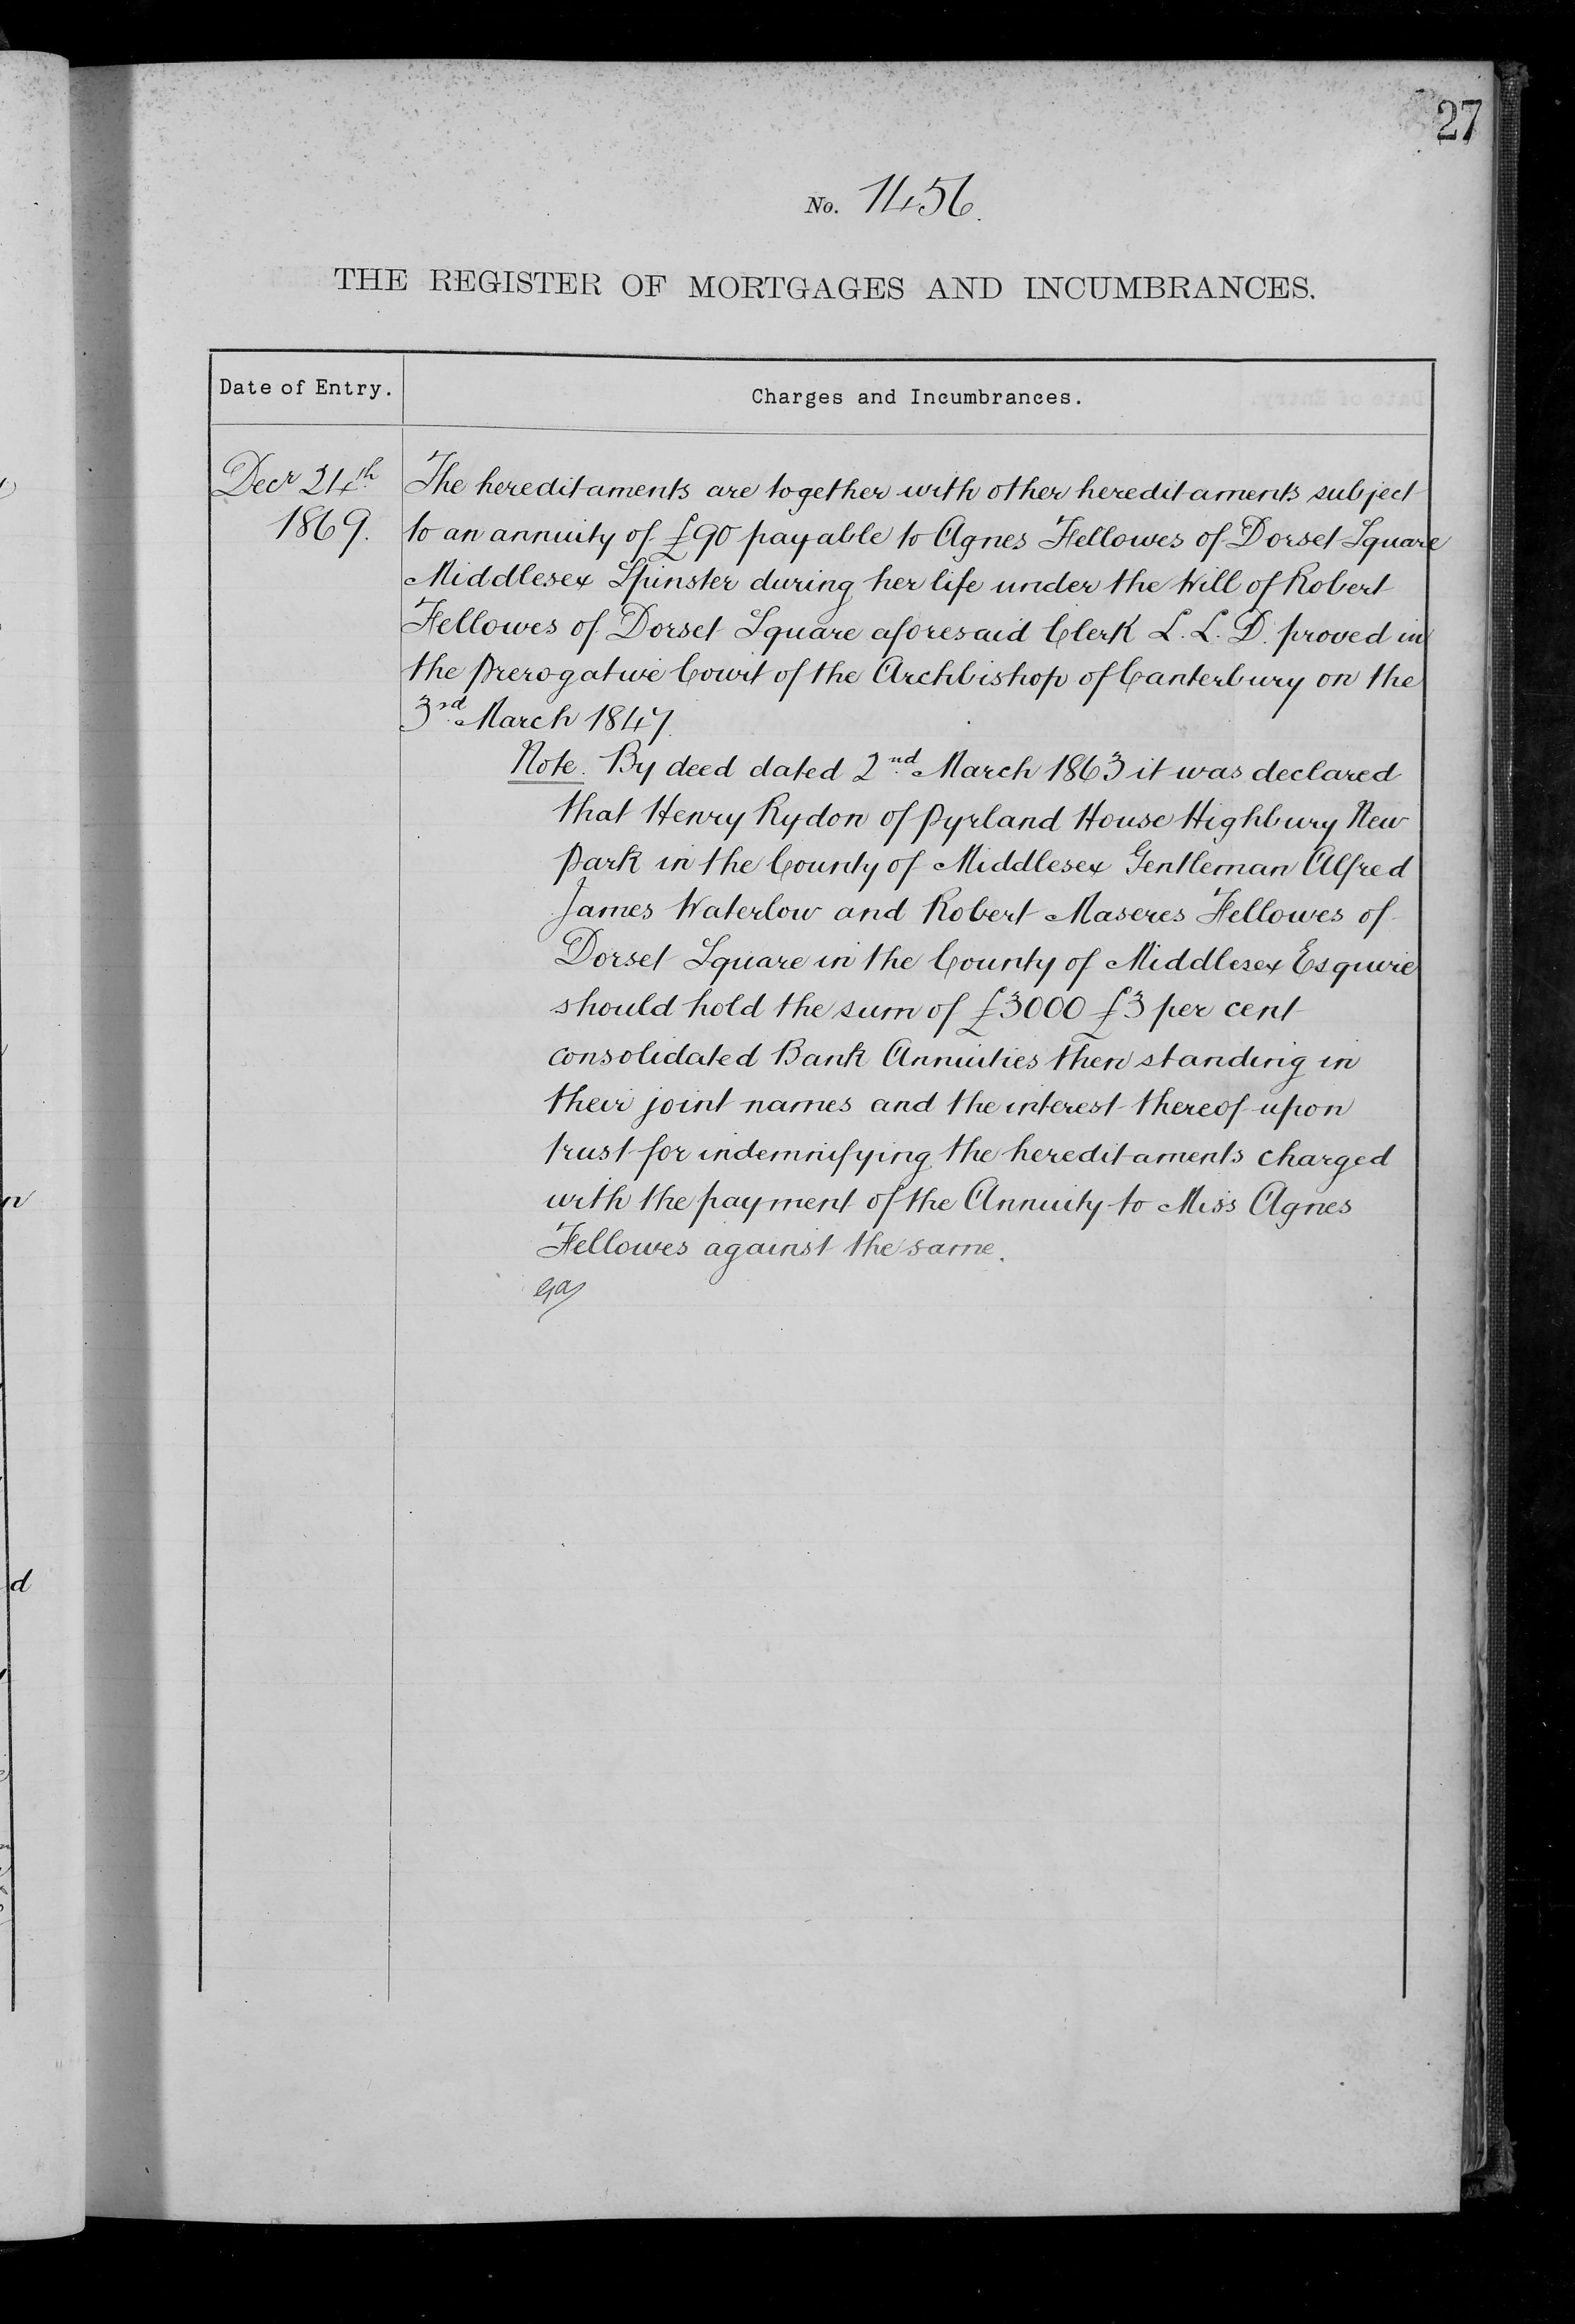 27
No. 1456.
THE REGISTER OF MORTGAGES AND INCUMBRANCES.
Date of Entry.
Charges and Incumbrances.
Decr 24th
1869.
The hereditaments are together with other hereditaments subject
to an annuity of £90 payable to Agnes Fellowes of Dorset Square
Middlesex Spinster during her life under the Will of Robert
Fellowes of Dorset Square aforesaid Clerk L. L. D. proved in
the Prerogative Court of the Archbishop of Canterbury on the
3rd March 1847.
Note. By deed dated 2nd March 1863 it was declared
that Henry Rydon of Pyrland House Highbury New
Park in the County of Middlesex Gentleman Alfred
James Waterlow and Robert Maseres Fellowes of
Dorset Square in the County of Middlesex Esquire
should hold the sum of £3000 £3 per cent
consolidated Bank Annuities then standing in
their joint names and the interest thereof upon
trust for indemnifying the hereditaments charged
with the payment of the Annuity to Miss Agnes
Fellowes against the same.